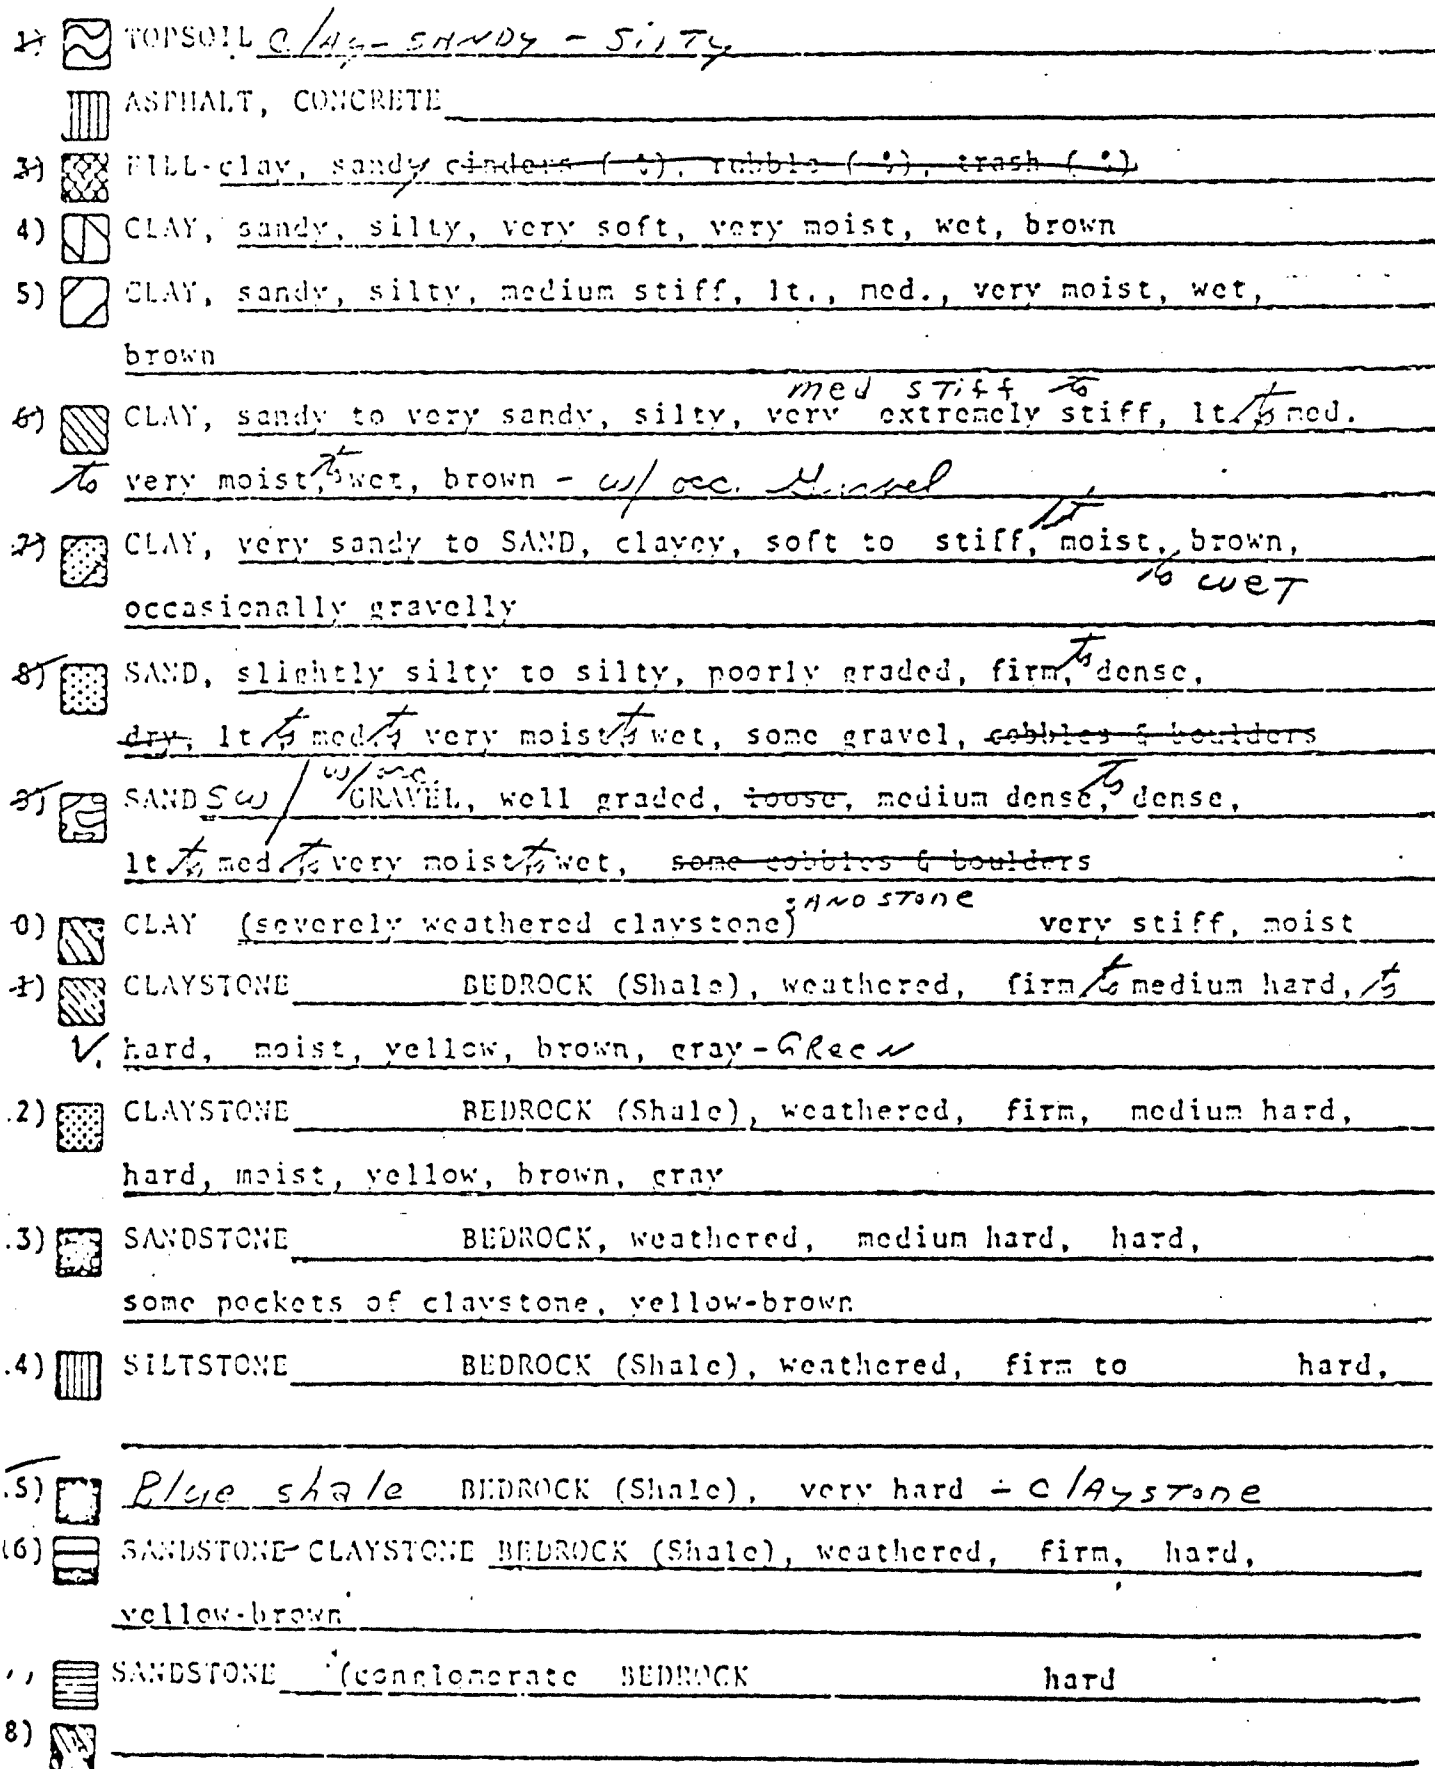 1) TOPSOIL Clay - SANDY - SilTy
ASPHALT, CONCRETE
3) FILL-clay, sandy cinders ( %), rubble ( %), trash ( %)
4) CLAY, sandy, silty, very soft, very moist, wet, brown
5) CLAY, sandy, silty, medium stiff, lt., med., very moist, wet,
brown
med STiff to
6) CLAY, sandy to very sandy, silty, very extremely stiff, lt. to med.
to very moist, to wet, brown - w/ occ. Gravel
7) CLAY, very sandy to SAND, clayey, soft to stiff, moist, brown,
to weT
occasionally gravelly
8) SAND, slightly silty to silty, poorly graded, firm, to dense,
dry, lt to med. to very moist to wet, some gravel, cobbles & boulders
w/ occ.
9) SAND SW / GRAVEL, well graded, loose, medium dense, to dense,
lt to med. to very moist to wet, some cobbles & boulders
SANDSTONE
0) CLAY (severely weathered claystone) very stiff, moist
1) CLAYSTONE BEDROCK (Shale), weathered, firm to medium hard, to
V. hard, moist, yellow, brown, gray - GReeN
.2) CLAYSTONE BEDROCK (Shale), weathered, firm, medium hard,
hard, moist, yellow, brown, gray
.3) SANDSTONE BEDROCK, weathered, medium hard, hard,
some pockets of claystone, yellow-brown
.4) SILTSTONE BEDROCK (Shale), weathered, firm to hard,
.5) Blue shale BEDROCK (Shale), very hard - ClAysTone
16) SANDSTONE-CLAYSTONE BEDROCK (Shale), weathered, firm, hard,
yellow-brown
SANDSTONE (conglomerate BEDROCK hard
8)